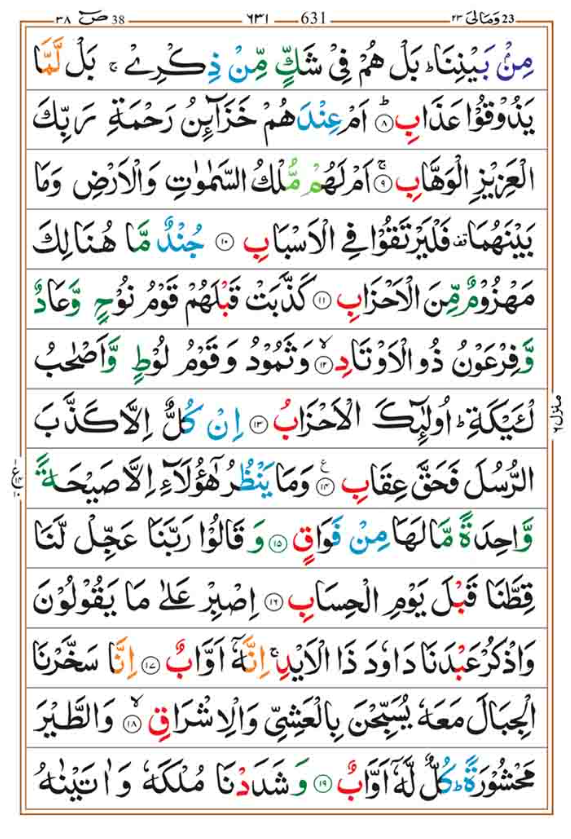 ٣٨ صٓ 38 ٦٣١ 631 وَمَالِیَ ٢٣ 23
مِنْۢ بَیْنِنَا ؕ بَلْ هُمْ فِیْ شَكٍّ مِّنْ ذِكْرِیْ ۚ بَلْ لَّمَّا
یَذُوْقُوْا عَذَابِ ؕ﴿۸﴾ اَمْ عِنْدَهُمْ خَزَآئِنُ رَحْمَةِ رَبِّكَ
الْعَزِیْزِ الْوَهَّابِ ۚ﴿۹﴾ اَمْ لَهُمْ مُّلْكُ السَّمٰوٰتِ وَالْاَرْضِ وَمَا
بَیْنَهُمَا ۫ فَلْیَرْتَقُوْا فِی الْاَسْبَابِ ﴿۱۰﴾ جُنْدٌ مَّا هُنَالِكَ
مَهْزُوْمٌ مِّنَ الْاَحْزَابِ ﴿۱۱﴾ كَذَّبَتْ قَبْلَهُمْ قَوْمُ نُوْحٍ وَّعَادٌ
وَّفِرْعَوْنُ ذُو الْاَوْتَادِ ۙ﴿۱۲﴾ وَثَمُوْدُ وَقَوْمُ لُوْطٍ وَّاَصْحٰبُ
لْـَٔیْكَةِ ؕ اُولٰٓئِكَ الْاَحْزَابُ ﴿۱۳﴾ اِنْ كُلٌّ اِلَّا كَذَّبَ
الرُّسُلَ فَحَقَّ عِقَابِ ﴿۱۴﴾ع وَمَا یَنْظُرُ هٰۤؤُلَآءِ اِلَّا صَیْحَةً
وَّاحِدَةً مَّا لَهَا مِنْ فَوَاقٍ ﴿۱۵﴾ وَقَالُوْا رَبَّنَا عَجِّلْ لَّنَا
قِطَّنَا قَبْلَ یَوْمِ الْحِسَابِ ﴿۱۶﴾ اِصْبِرْ عَلٰی مَا یَقُوْلُوْنَ
وَاذْكُرْ عَبْدَنَا دَاوٗدَ ذَا الْاَیْدِ ۚ اِنَّهٗۤ اَوَّابٌ ﴿۱۷﴾ اِنَّا سَخَّرْنَا
الْجِبَالَ مَعَهٗ یُسَبِّحْنَ بِالْعَشِیِّ وَالْاِشْرَاقِ ۙ﴿۱۸﴾ وَالطَّیْرَ
مَحْشُوْرَةً ؕ كُلٌّ لَّهٗۤ اَوَّابٌ ﴿۱۹﴾ وَشَدَدْنَا مُلْكَهٗ وَاٰتَیْنٰهُ